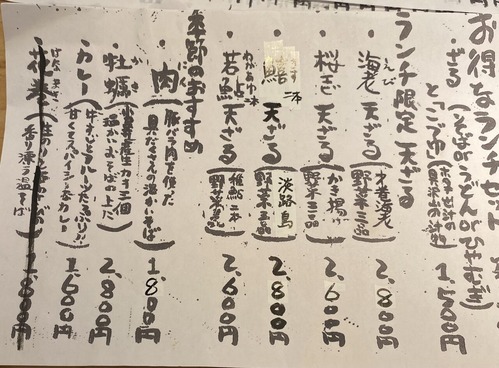 お得なランチセット
ざる(そばorうどんorひやむぎ)
と「こづゆ」
1,500円
ランチ限定 天ざる
・海老天ざる(大海老 野菜三品)2,800円
えび
・桜えび天ざる(かき揚げ 野菜三品)2,600円
・鱚二本天ざる(淡路島 野菜三品)2,800円
・若鮎天ざる(稚鮎二本 野菜三品)2,600円
わかあゆ
季節のおすすめ
・肉(豚バラ肉を使った 具だくさんの温かいそば)1,800円
・牡蠣(カキ三個 温かいおそばの上に)2,800円
かき
・カレー(牛すじとフルーツたっぷり!! 甘くてスパイシーな和カレー)1,600円